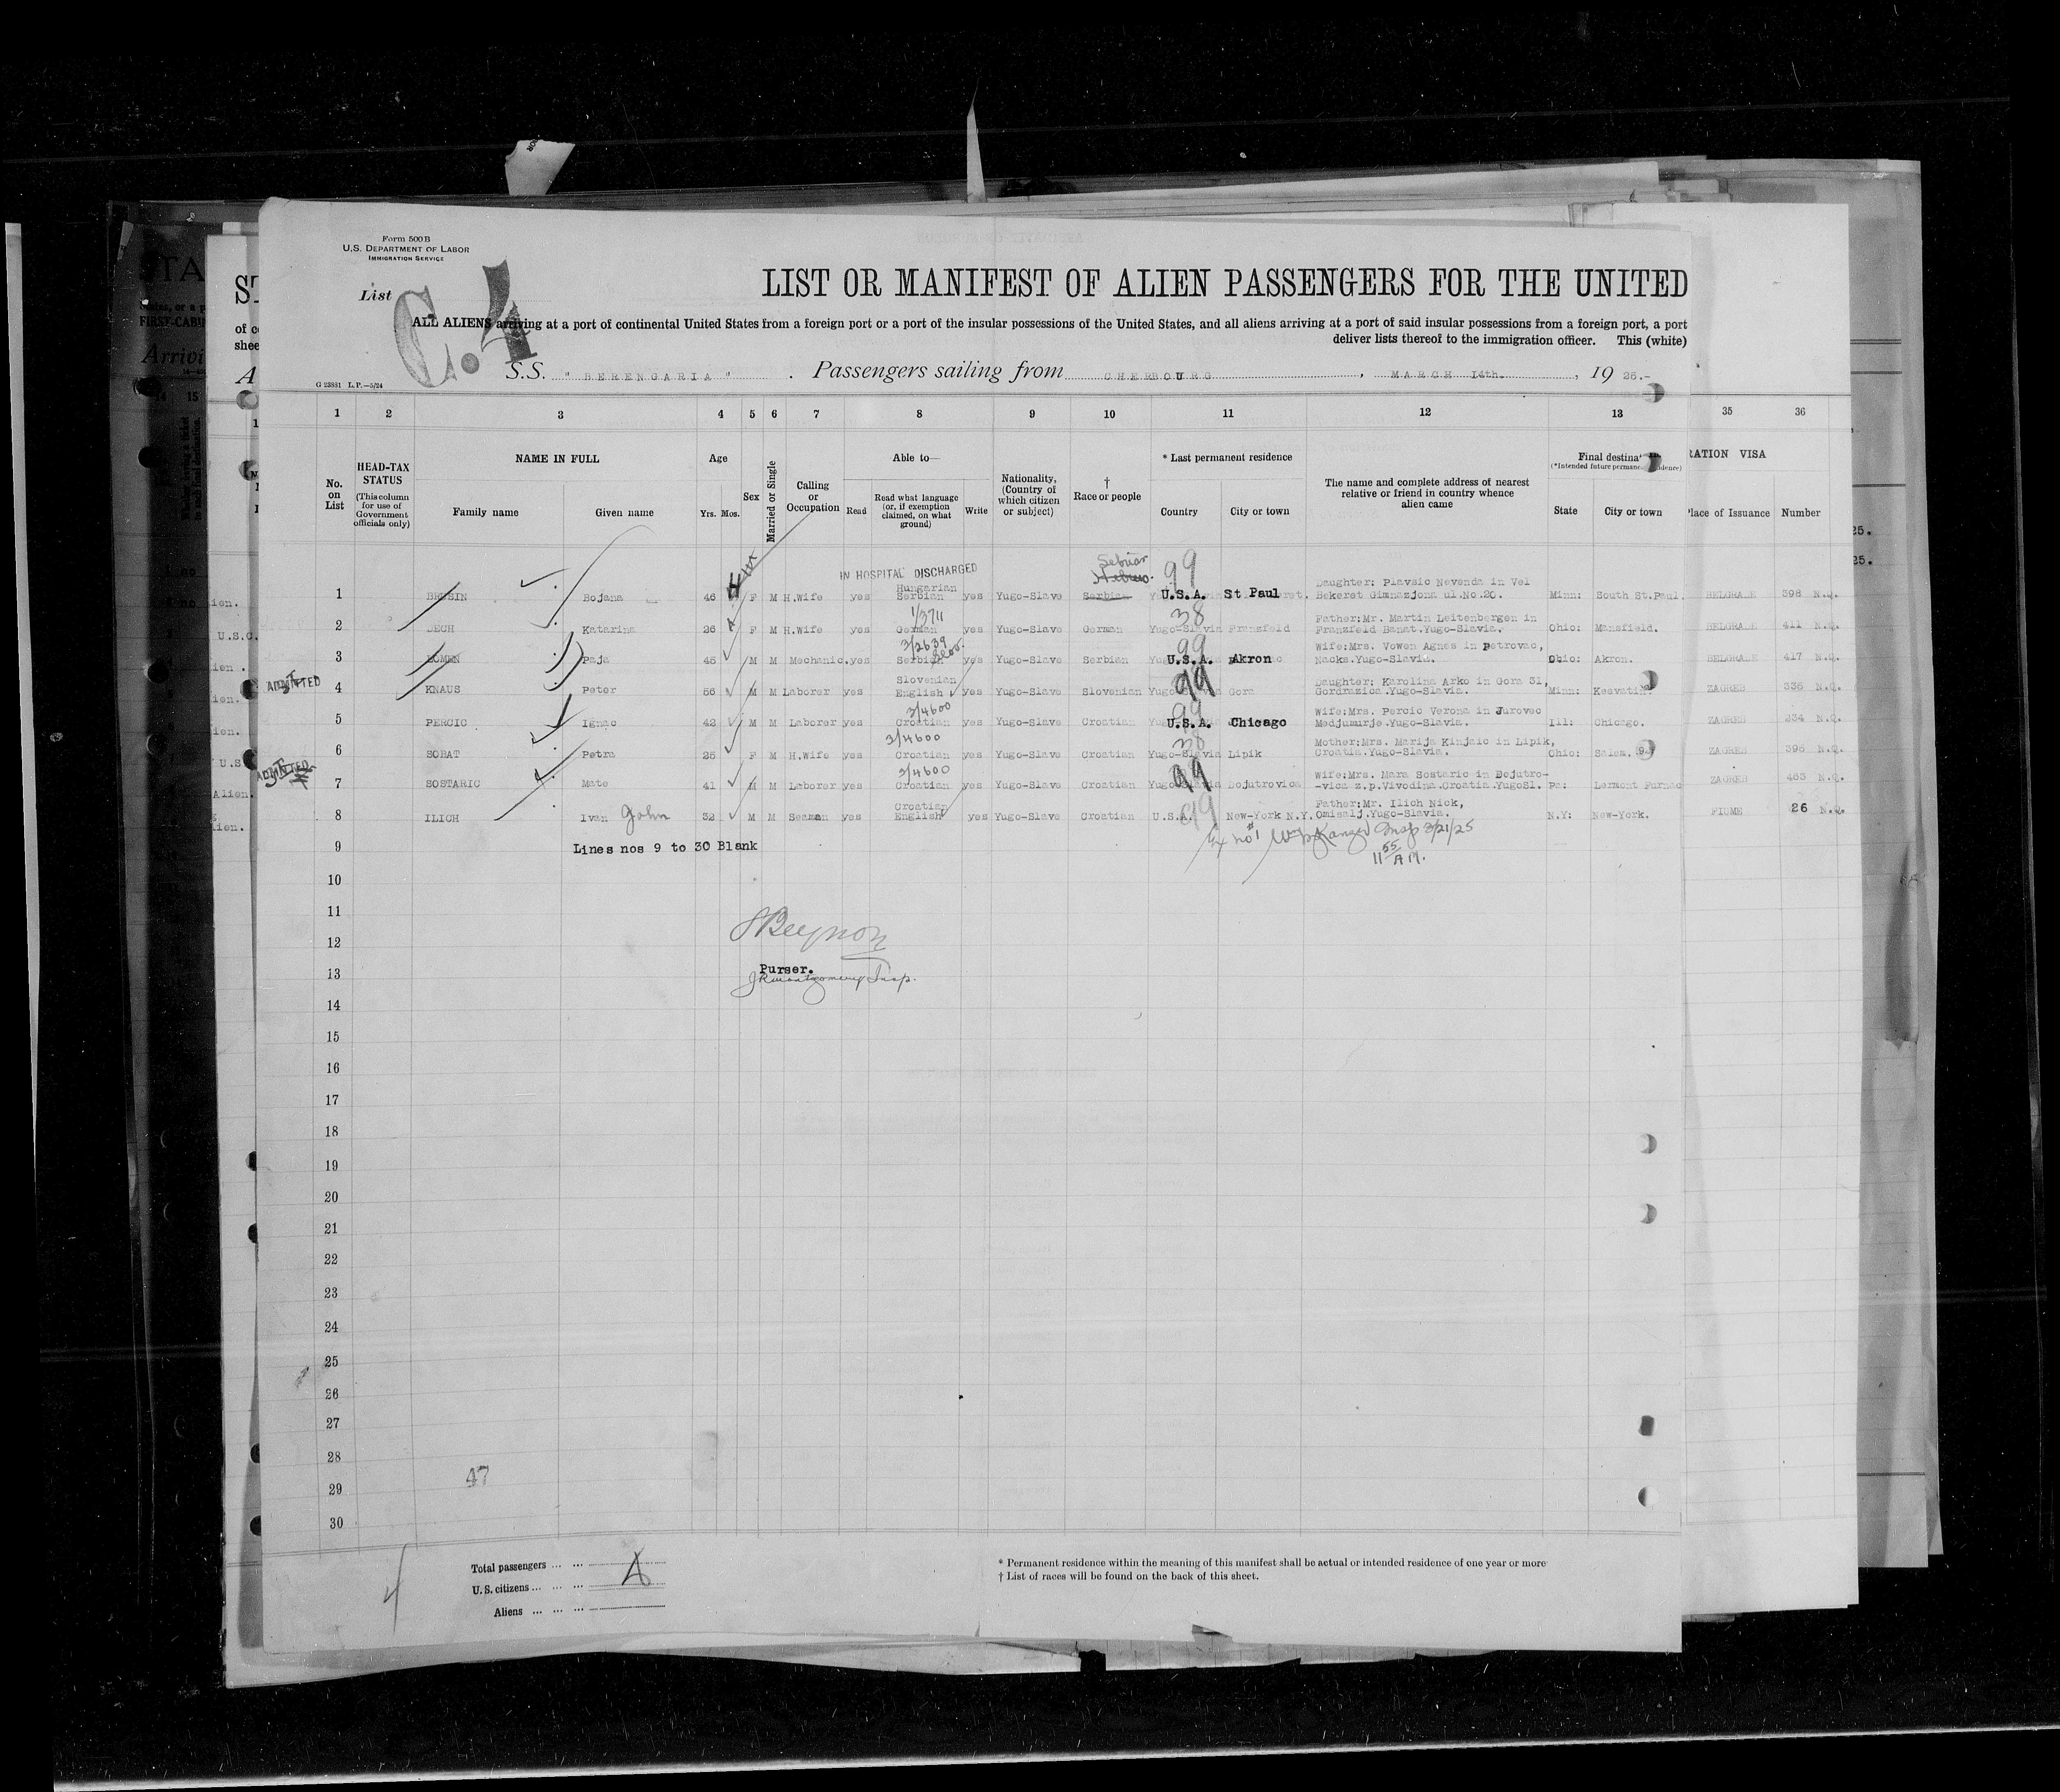 Form 500B
U.S. DEPARTMENT OF LABOR
IMMIGRATION SERVICE
List C.4
LIST OR MANIFEST OF ALIEN PASSENGERS FOR THE UNITED
ALL ALIENS arriving at a port of continental United States from a foreign port or a port of the insular possessions of the United States, and all aliens arriving at a port of said insular possessions from a foreign port, a port
deliver lists thereof to the immigration officer. This (white)
G 23881 L.P.—5/24
S.S. "BERENGARIA". Passengers sailing from CHERBOURG, MARCH 14th., 19 25.-
1 2 3 4 5 6 7 8 9 10 11 12 13 35 36
No. on List
HEAD-TAX STATUS
(This column for use of Government officials only)
NAME IN FULL
Family name Given name
Age
Yrs. Mos.
Sex
Married or Single
Calling or Occupation
Able to—
Read
Read what language (or, if exemption claimed, on what ground)
Write
Nationality, (Country of which citizen or subject)
† Race or people
* Last permanent residence
Country City or town
The name and complete address of nearest relative or friend in country whence alien came
Final destina
(*Intended future perman
State City or town
RATION VISA
Place of Issuance Number
IN HOSPITAL DISCHARGED
99
Hungarian Daughter: Plavsic Nevenda in Vel
1 Bojana 46 F M H.Wife yes Serbian yes Yugo-Slave Serbian U.S.A. St Paul Bekeret Gimnazjona ul.No.20. Minn: South St.Paul. BELGRADE 398 N.Q.
1/3711 38 Father:Mr. Martin Leitenbergen in
2 Katarina 26 F M H.Wife yes German yes Yugo-Slave German Yugo-Slavia Franzfeld Franzfeld Banat.Yugo-Slavia. Ohio: Mansfield. BELGRADE 411 N.Q.
3/2639 99 Wife:Mrs. Vowen Agnes in Petrovac,
3 Paja 45 M M Mechanic. yes Serbian yes Yugo-Slave Serbian U.S.A. Akron Nacks.Yugo-Slavia. Ohio: Akron. BELGRADE 417 N.Q.
ADMITTED Slovenian 99 Daughter: Karolina Arko in Gora 31,
4 KNAUS Peter 56 M M Laborer yes English yes Yugo-Slave Slovenian Gora Gordrazica.Yugo-Slavia. Minn: ZAGREB 336 N.Q.
3/4600 99 Wife:Mrs. Percic Verona in Jurovec
5 PERCIC Ignac 42 M M Laborer yes Croatian yes Yugo-Slave Croatian U.S.A. Chicago Medjumurje.Yugo-Slavia. Ill: Chicago. ZAGREB 234 N.Q.
3/4600 38 Mother:Mrs. Marija Kinjaic in Lipik,
6 SOBAT Petra 25 F M H.Wife yes Croatian yes Yugo-Slave Croatian Yugo-Slavia Lipik Croatia.Yugo-Slavia. Ohio: Salem. ZAGREB 396 N.Q.
ADMITTED 3/4600 99 Wife:Mrs. Mara Sostaric in Dojutro-
7 SOSTARIC Mato 41 M M Laborer yes Croatian yes Yugo-Slave Croatian Dojutrovica -vica z.p.Vivodina.Croatia.YugoSl. Pa: Larmont Furnac ZAGREB 463 N.Q.
Croatian 99 Father:Mr. Ilich Nick,
8 ILICH Ivan John 32 M M Seaman yes English yes Yugo-Slave Croatian U.S.A. New-York N.Y. Omisalj.Yugo-Slavia. N.Y: New-York. FIUME 26 N.Q.
9 Lines nos 9 to 30 Blank
Insp 3/21/25
11 55 A.M.
10
11
12
Purser.
13
14
15
16
17
18
19
20
21
22
23
24
25
26
27
28
47
29
30
Total passengers ... ...
U.S. citizens ... ... ...
Aliens ... ... ...
4
* Permanent residence within the meaning of this manifest shall be actual or intended residence of one year or more
† List of races will be found on the back of this sheet.